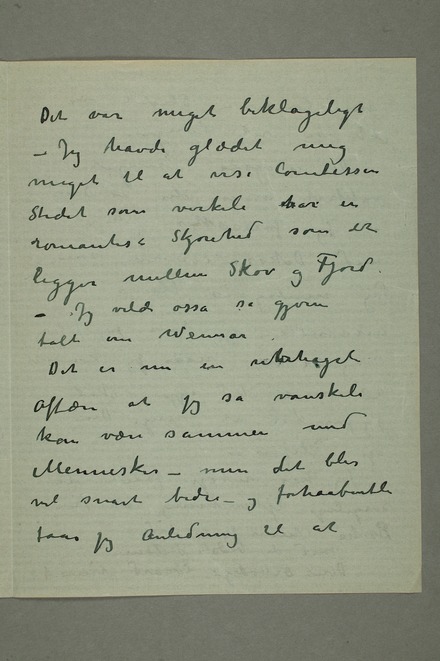 Det var meget beklageligt
– Jeg havde glædet mig
meget til at vise Comtessen
Stedet som virkele har en
romantisk Skjønhed som det
ligger mellem Skov og Fjord.
– Jeg vilde ossa sa gjern
talt om Weimar.
Det er nu en
Affære at jeg sa vanskele
kan være sammen med
Mennesker – men det blir
vel snart bedre – og forhaabentle
faar jeg Anledning til at